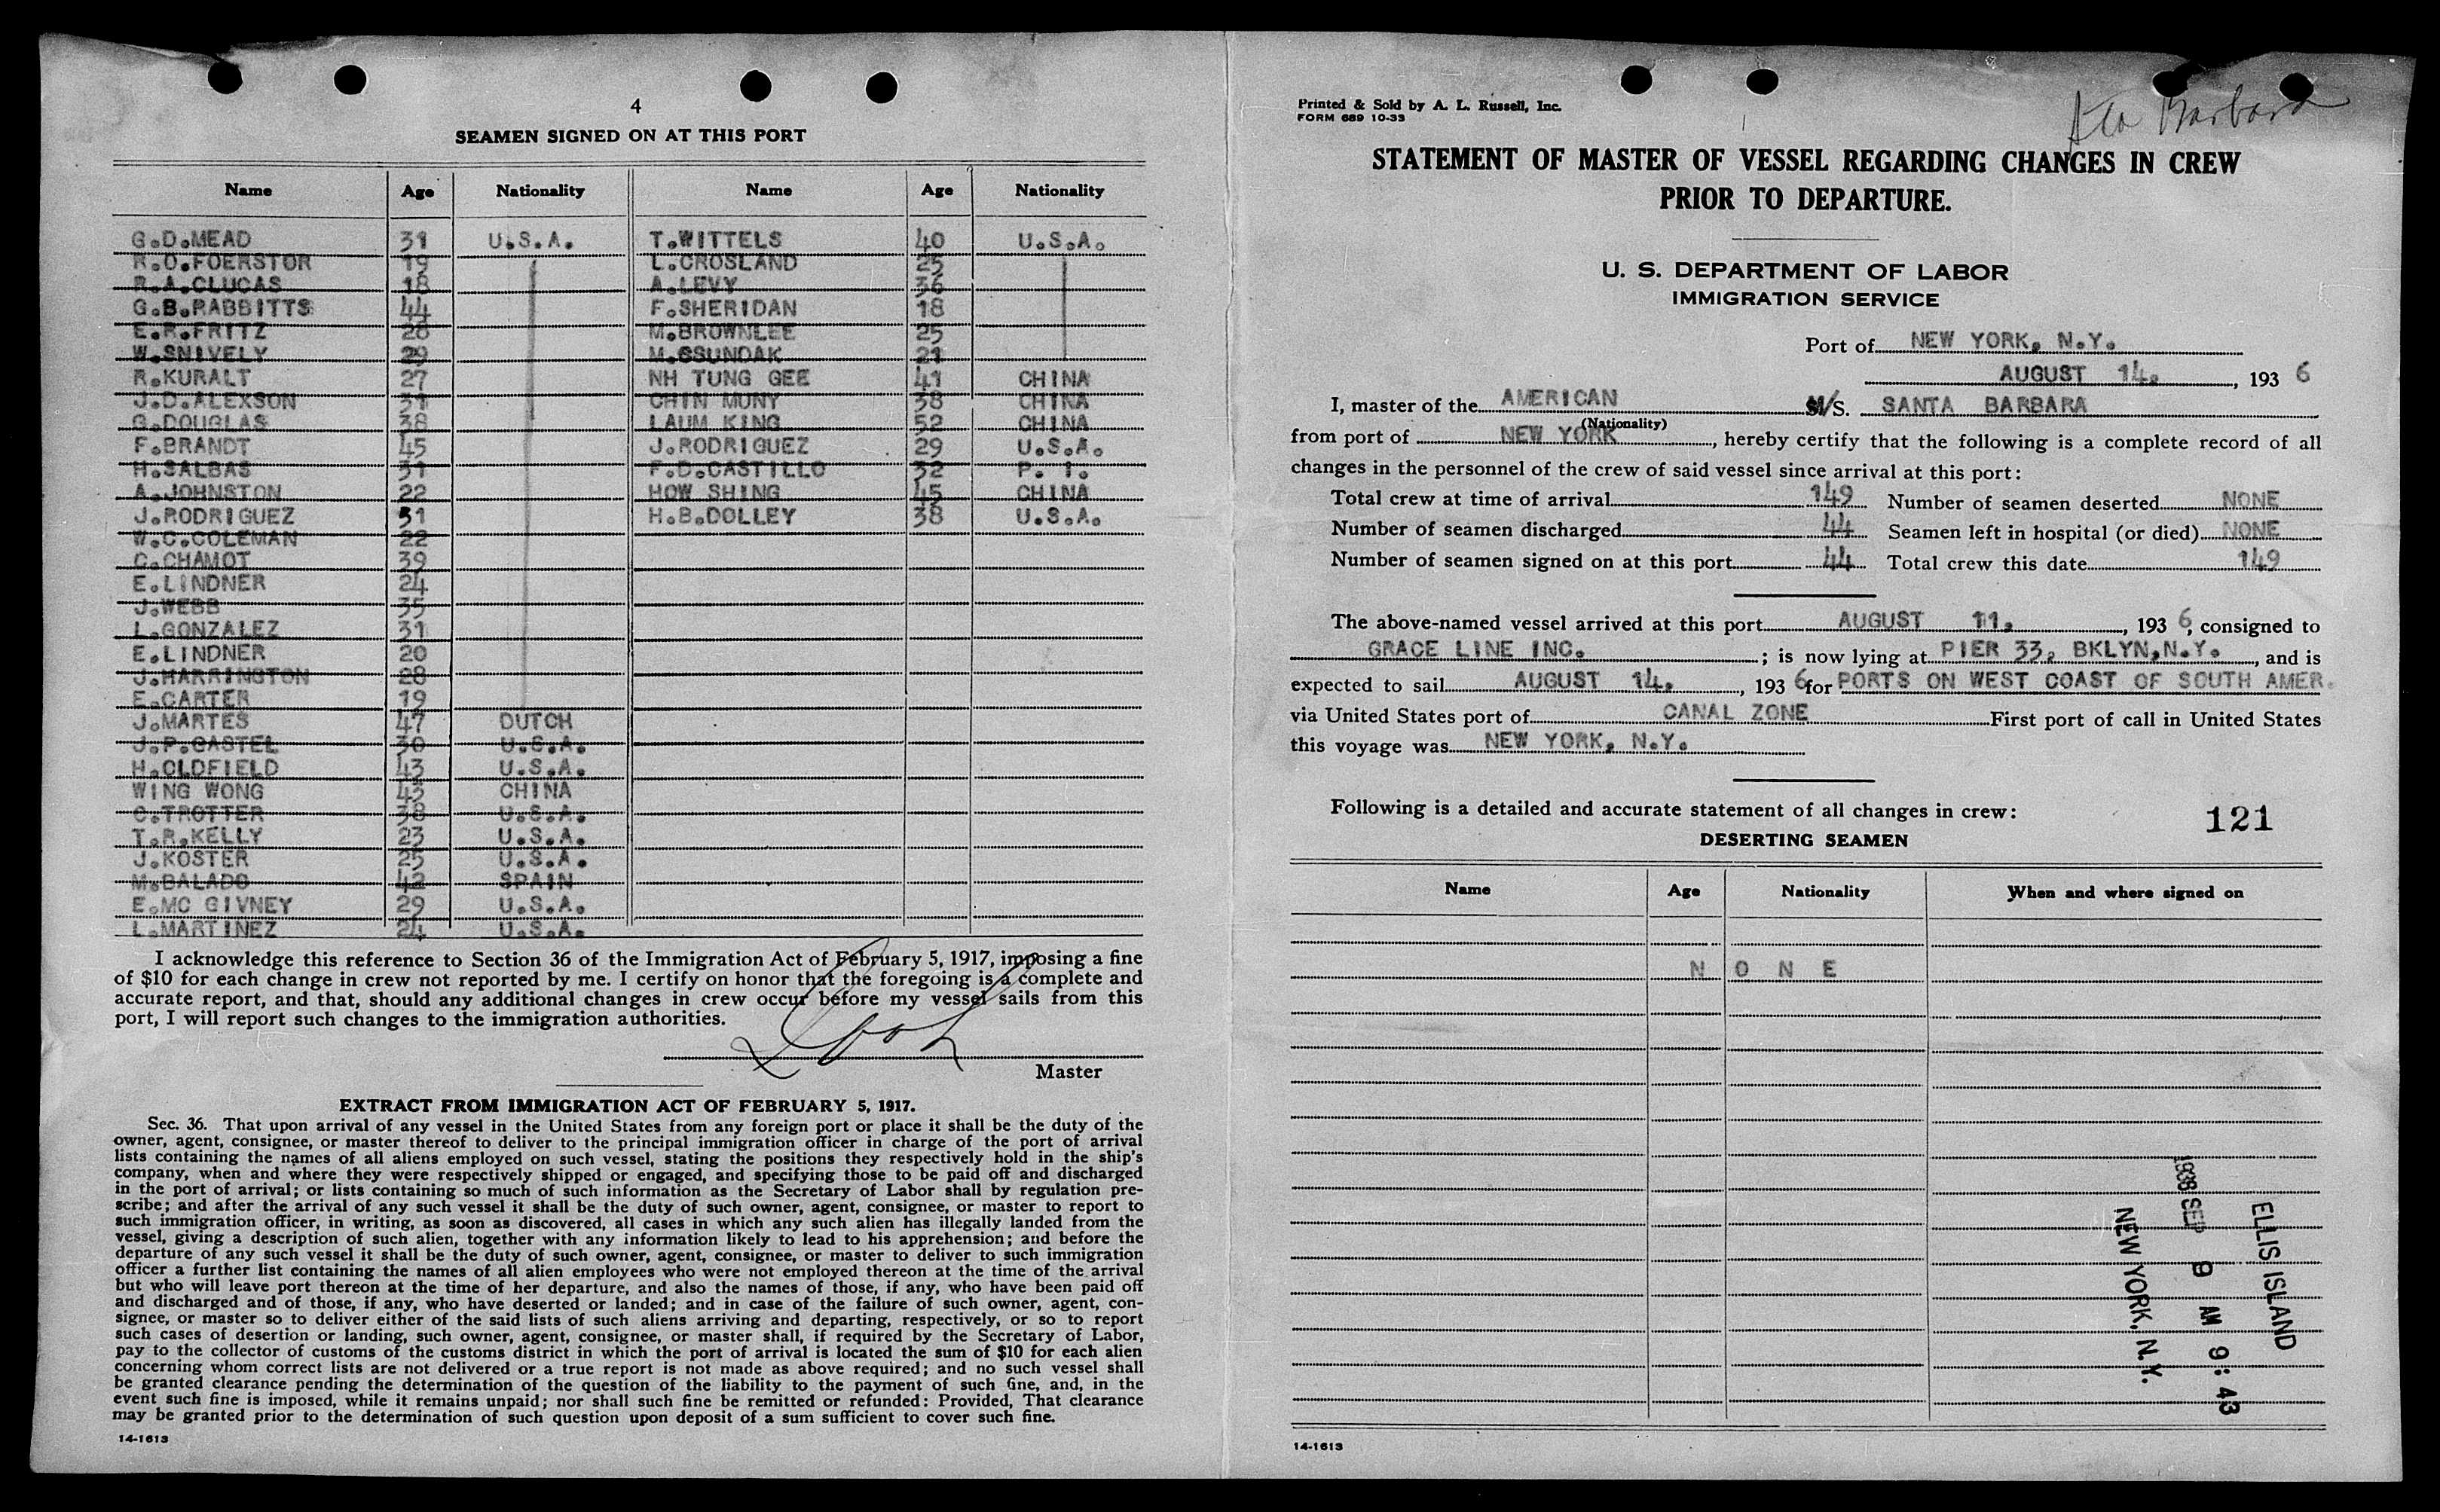 4
SEAMEN SIGNED ON AT THIS PORT
Name Age Nationality Name Age Nationality
G.D.MEAD 31 U.S.A. T.WITTELS 40 U.S.A.
R.O.FOERSTOR 19 L.CROSLAND 25
R.A.CLUCAS 18 A.LEVY 36
G.B.RABBITTS 44 F.SHERIDAN 18
E.R.FRITZ 28 M.BROWNLEE 25
W.SNIVELY 29 21
R.KURALT 27 NH TUNG GEE 41 CHINA
J.D.ALEXSON 31 CHIN MUNY 38 CHINA
G.DOUGLAS 38 LAUM KING 52 CHINA
F.BRANDT 45 J.RODRIGUEZ 29 U.S.A.
H.SALBAS 31 F.D.CASTILLO 32 P. I.
A.JOHNSTON 22 HOW SHING 45 CHINA
J.RODRIGUEZ 31 H.B.DOLLEY 38 U.S.A.
W.C.COLEMAN 22
C.CHAMOT 39
E.LINDNER 24
J.WEBB 35
L.GONZALEZ 31
E.LINDNER 20
J.HARRINGTON 28
E.CARTER 19
J.MARTES 47 DUTCH
J.P.CASTEL 30 U.S.A.
H.OLDFIELD 43 U.S.A.
WING WONG 43 CHINA
C.TROTTER 38 U.S.A.
T.R.KELLY 23 U.S.A.
J.KOSTER 25 U.S.A.
M.BALADO 42 SPAIN
E.MC GIVNEY 29 U.S.A.
L.MARTINEZ 24 U.S.A.
I acknowledge this reference to Section 36 of the Immigration Act of February 5, 1917, imposing a fine
of $10 for each change in crew not reported by me. I certify on honor that the foregoing is a complete and
accurate report, and that, should any additional changes in crew occur before my vessel sails from this
port, I will report such changes to the immigration authorities.
Master
EXTRACT FROM IMMIGRATION ACT OF FEBRUARY 5, 1917.
Sec. 36. That upon arrival of any vessel in the United States from any foreign port or place it shall be the duty of the
owner, agent, consignee, or master thereof to deliver to the principal immigration officer in charge of the port of arrival
lists containing the names of all aliens employed on such vessel, stating the positions they respectively hold in the ship's
company, when and where they were respectively shipped or engaged, and specifying those to be paid off and discharged
in the port of arrival; or lists containing so much of such information as the Secretary of Labor shall by regulation pre-
scribe; and after the arrival of any such vessel it shall be the duty of such owner, agent, consignee, or master to report to
such immigration officer, in writing, as soon as discovered, all cases in which any such alien has illegally landed from the
vessel, giving a description of such alien, together with any information likely to lead to his apprehension; and before the
departure of any such vessel it shall be the duty of such owner, agent, consignee, or master to deliver to such immigration
officer a further list containing the names of all alien employees who were not employed thereon at the time of the arrival
but who will leave port thereon at the time of her departure, and also the names of those, if any, who have been paid off
and discharged and of those, if any, who have deserted or landed; and in case of the failure of such owner, agent, con-
signee, or master so to deliver either of the said lists of such aliens arriving and departing, respectively, or so to report
such cases of desertion or landing, such owner, agent, consignee, or master shall, if required by the Secretary of Labor,
pay to the collector of customs of the customs district in which the port of arrival is located the sum of $10 for each alien
concerning whom correct lists are not delivered or a true report is not made as above required; and no such vessel shall
be granted clearance pending the determination of the question of the liability to the payment of such fine, and, in the
event such fine is imposed, while it remains unpaid; nor shall such fine be remitted or refunded: Provided, That clearance
may be granted prior to the determination of such question upon deposit of a sum sufficient to cover such fine.
14-1613
Printed & Sold by A. L. Russell, Inc.
FORM 689 10-33
Sta Barbara
STATEMENT OF MASTER OF VESSEL REGARDING CHANGES IN CREW
PRIOR TO DEPARTURE.
U. S. DEPARTMENT OF LABOR
IMMIGRATION SERVICE
Port of NEW YORK, N.Y.
AUGUST 14, 1936
I, master of the AMERICAN M/S. SANTA BARBARA
(Nationality)
from port of NEW YORK, hereby certify that the following is a complete record of all
changes in the personnel of the crew of said vessel since arrival at this port:
Total crew at time of arrival 149 Number of seamen deserted NONE
Number of seamen discharged 44 Seamen left in hospital (or died) NONE
Number of seamen signed on at this port 44 Total crew this date 149
The above-named vessel arrived at this port AUGUST 11, 1936, consigned to
GRACE LINE INC.; is now lying at PIER 33, BKLYN,N.Y., and is
expected to sail AUGUST 14, 1936 for PORTS ON WEST COAST OF SOUTH AMER.
via United States port of CANAL ZONE First port of call in United States
this voyage was NEW YORK, N.Y.
Following is a detailed and accurate statement of all changes in crew:
121
DESERTING SEAMEN
Name Age Nationality When and where signed on
N O N E
ELLIS ISLAND
1936 SEP 9 AM 9:43
NEW YORK, N.Y.
14-1613